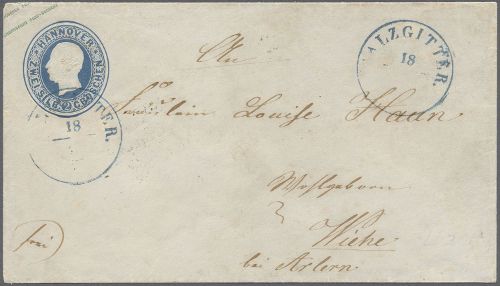 HANNOVER
ZWEI SILB. GROSCHEN
2
ALZGITTER.
18
TER.
18
An
Fräulein Louise Haun
Wohlgeboren
Wiehe
bei Artern
frei